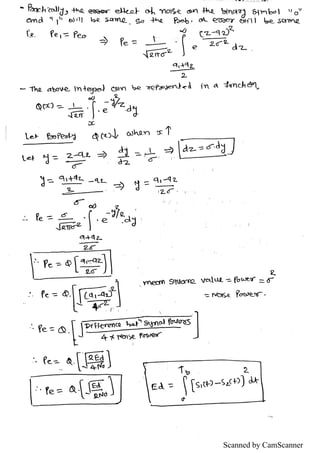 - Practically, the error effect of noise on the binary symbol "0"
and "1" will be same. so the Prob. of error will be same
i.e. Pe1 = Pe0 ⇒ Pe = 1/√2πσ² ∫_{(a1+a2)/2}^{∞} e^{-(z-a2)²/2σ²} dz
- The above integral can be represented in a function,
Q(x) = 1/√2π ∫_{x}^{∞} e^{-y²/2} dy
Let Property Q(x)↓ when x↑
Let y = (z-a2)/σ ⇒ dy/dz = 1/σ ⇒ dz = σdy
y = ((a1+a2)/2 - a2)/σ ⇒ y = (a1-a2)/2σ
∴ Pe = σ/√2πσ² ∫_{(a1+a2)/2σ}^{∞} e^{-y²/2} dy
∴ Pe = Q[(a1-a2)/2σ]
mean square value = Power = σ²
= Noise Power.
∴ Pe = Q.[√((a1-a2)²/4σ²)]
∴ Pe = Q.[√(Difference betn Signal Powers / 4 x Noise Power)]
∴ Pe = Q.[√(2Ed/4N0)]
∴ Pe = Q.[√(Ed/2N0)]
Ed = ∫^{Tb} [S1(t)-S2(t)]² dt
Scanned by CamScanner